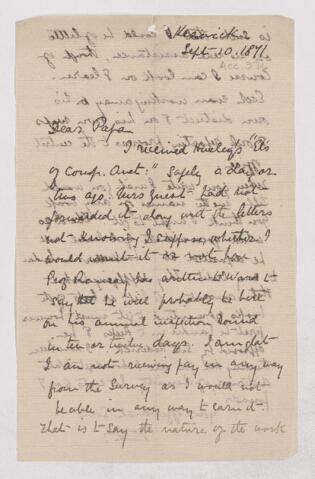 Keswick
Sept. 10. 1871
Dear Papa
I received Huxley's "Els
of Comp. Anat:" safely a day or
two ago. Miss Guest had not
forwarded it along with the letters
not knowing I suppose whether I
would want it or not.
Prof Ramsay has written to Ward to
say he will probably be here
on his annual inspection round
in ten or twelve days. I am glad
I am not receiving pay in any way
from the Survey as I would not
be able in any way to earn it.
That is to say the nature of the work